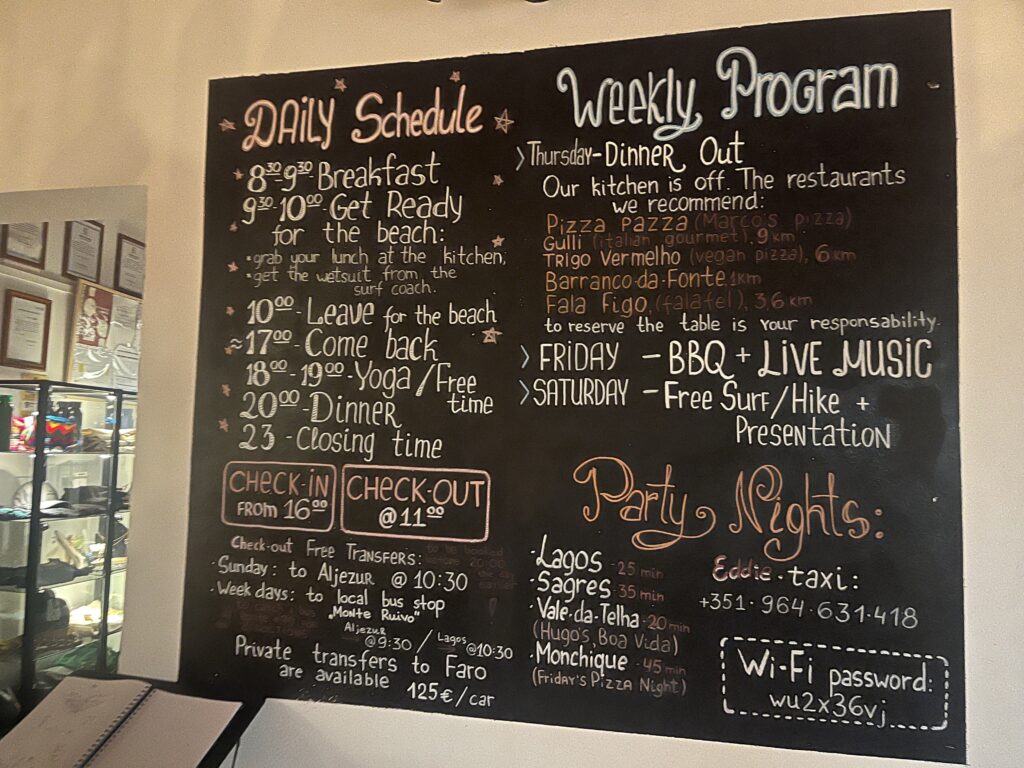 DAILY Schedule
8³⁰-9³⁰-Breakfast
9³⁰-10⁰⁰-Get Ready
for the beach:
•grab your lunch at the kitchen,
•get the wetsuit from the
surf coach.
10⁰⁰-Leave for the beach
≈17⁰⁰-Come back
18⁰⁰-19⁰⁰-Yoga/Free
time
20⁰⁰-Dinner
23-Closing time
CHECK-IN
FROM 16⁰⁰
CHECK-OUT
@11⁰⁰
Check-out Free Transfers:
•Sunday: to Aljezur @ 10:30
•Week days: to local bus stop
„Monte Ruivo"
Aljezur @9:30 / Lagos @10:30
Private transfers to Faro
are available 125€/car
Weekly Program
>Thursday-Dinner Out
Our kitchen is off. The restaurants
we recommend:
Pizza Pazza (Marco's pizza)
Gulli (italian gourmet), 9 km
Trigo Vermelho (vegan pizza), 6 km
Barranco-da-Fonte 1km
Fala Figo, (falafel), 3,6 km
to reserve the table is your responsability.
>FRIDAY - BBQ + LIVE MUSIC
>SATURDAY - Free Surf/Hike +
Presentation
Party Nights:
•Lagos - 25 min
•Sagres - 35 min
•Vale-da-Telha - 20 min
(Hugo's, Boa Vida)
•Monchique - 45 min
(Friday's Pizza Night)
Eddie-taxi:
+351-964-631-418
Wi-Fi password:
wu2x36vj